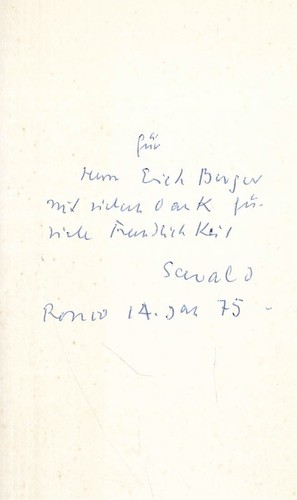 für
Herrn Erich Berger
mit vielem Dank für
viele Freundlichkeit
Ronco 14. Jan 75 -